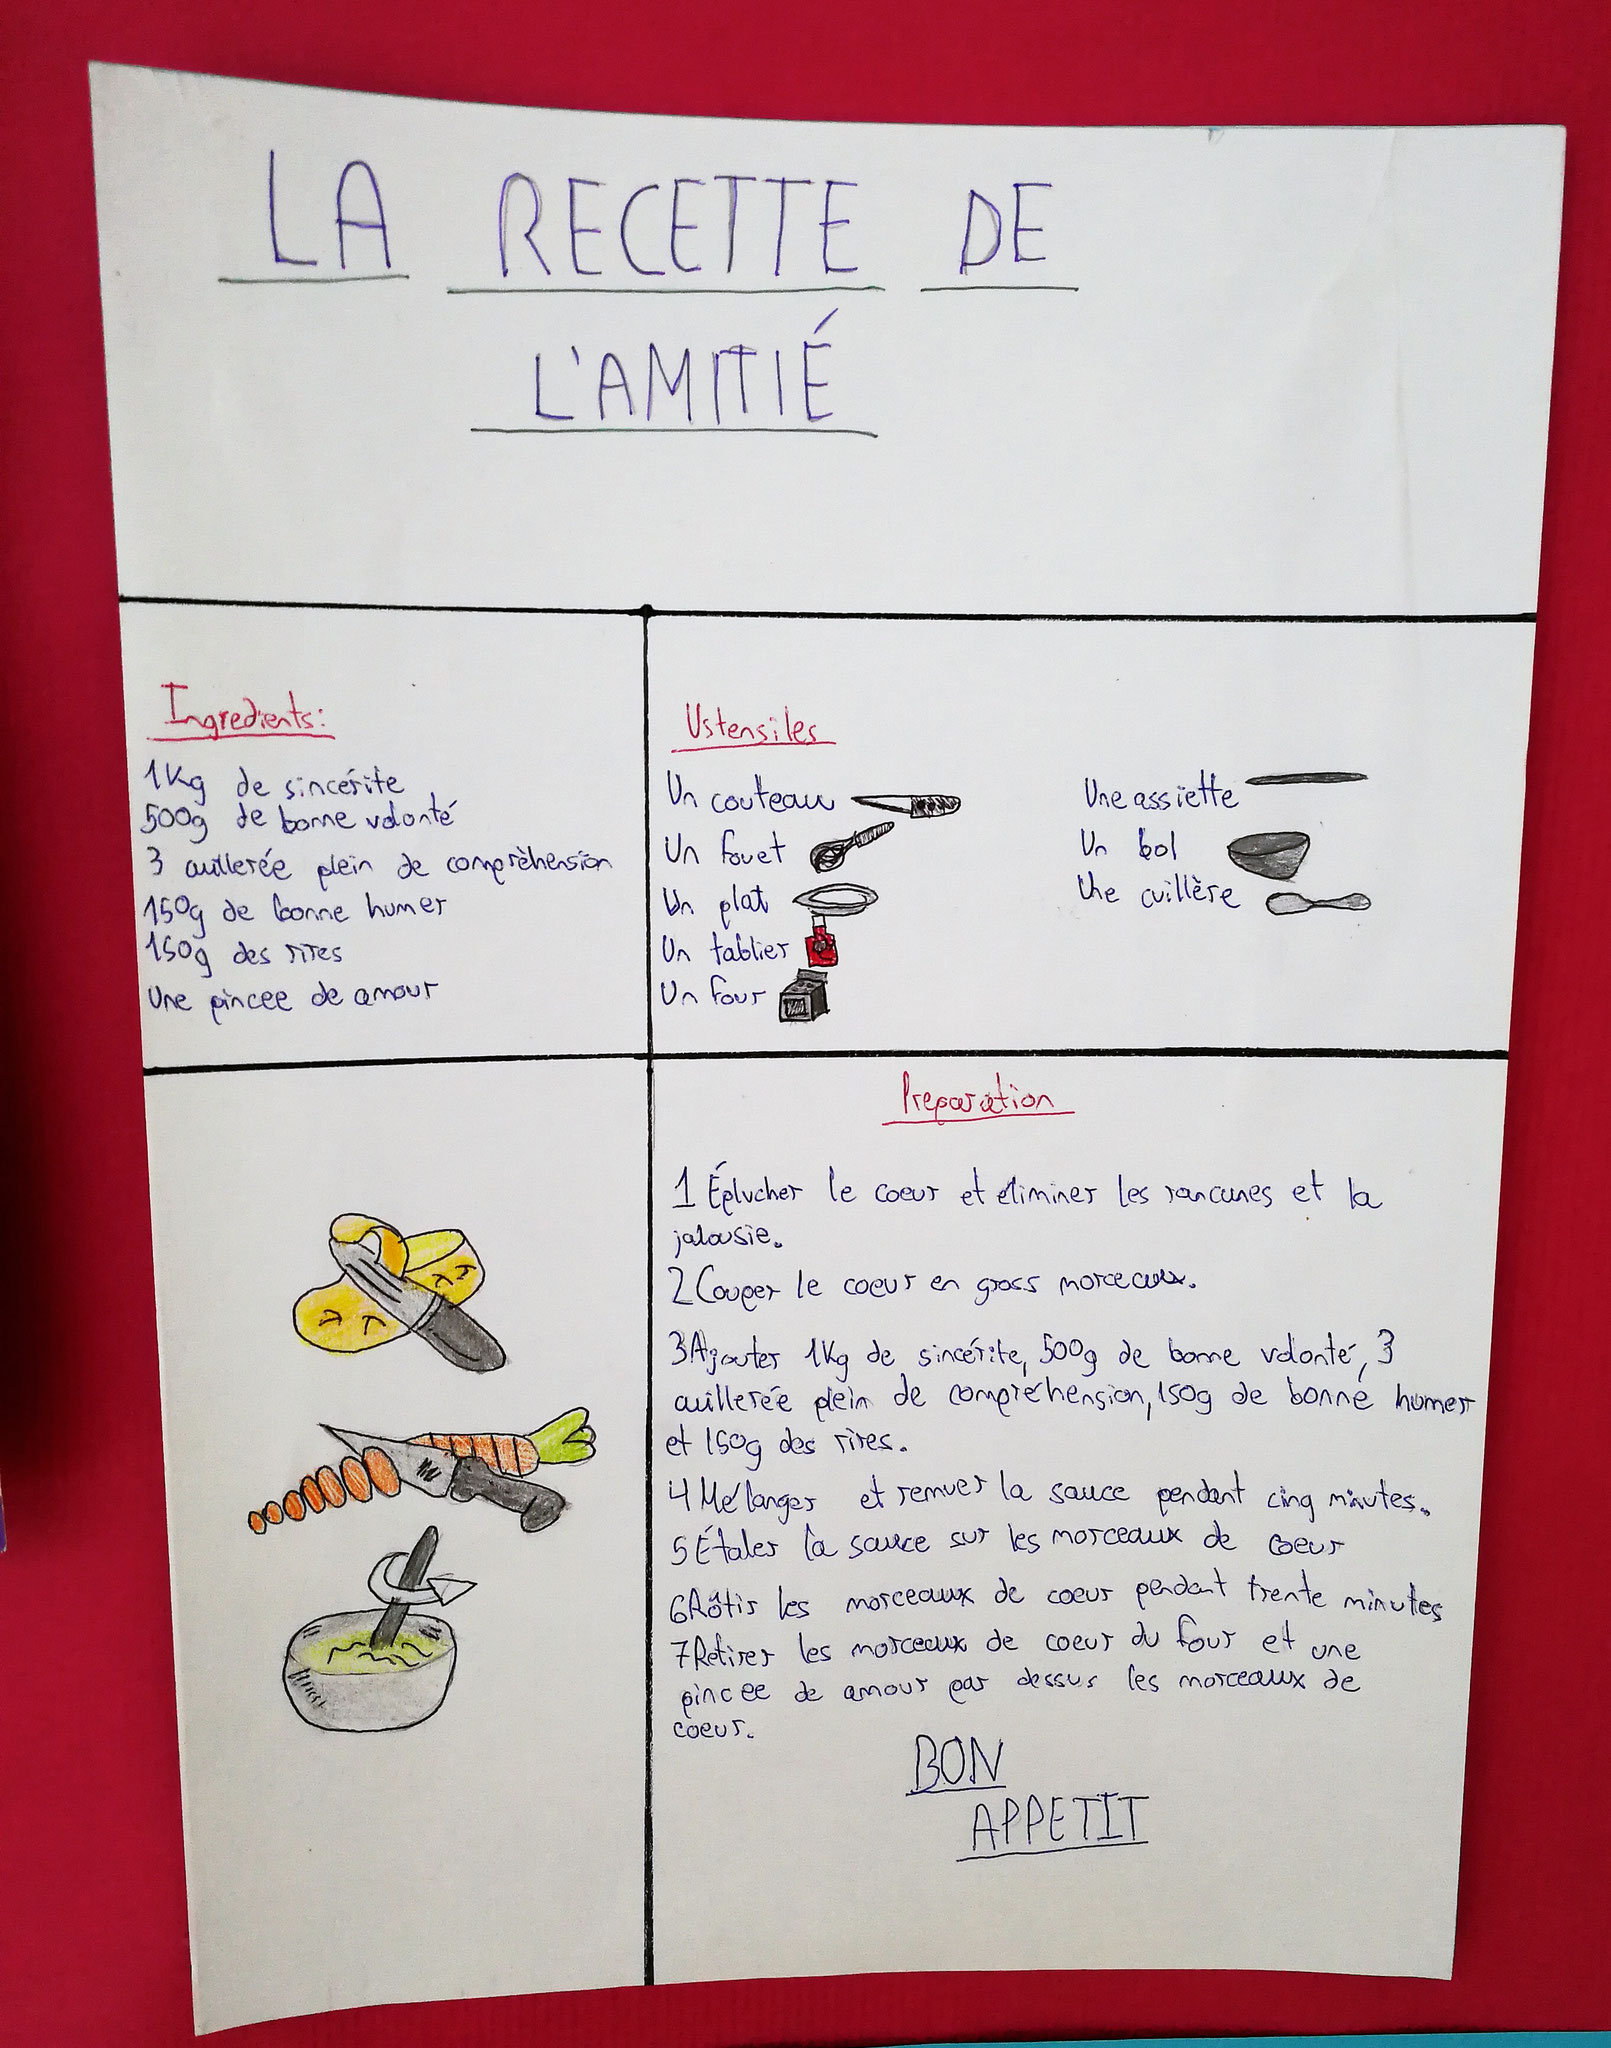 LA RECETTE DE
L'AMITIÉ
Ingredients:
1Kg de sincérite
500g de bonne volonté
3 cuillerée plein de compréhension
150g de bonne humer
150g des rires
Une pincee de amour
Ustensiles
Un couteau
Un fouet
Un plat
Un tablier
Un four
Une assiette
Un bol
Une cuillère
Preparation
1 Éplucher le coeur et éliminer les rancunes et la
jalousie.
2 Couper le coeur en gross morceaux.
3 Ajouter 1Kg de sincérite, 500g de bonne volonté, 3
cuillerée plein de compréhension, 150g de bonné humer
et 150g des rires.
4 Mélanger et remuer la sauce pendant cinq minutes.
5 Étaler la sauce sur les morceaux de coeur
6 Rôtir les morceaux de coeur pendant trente minutes
7 Retirer les morceaux de coeur du four et une
pincee de amour par dessus les morceaux de
coeur.
BON
APPETIT